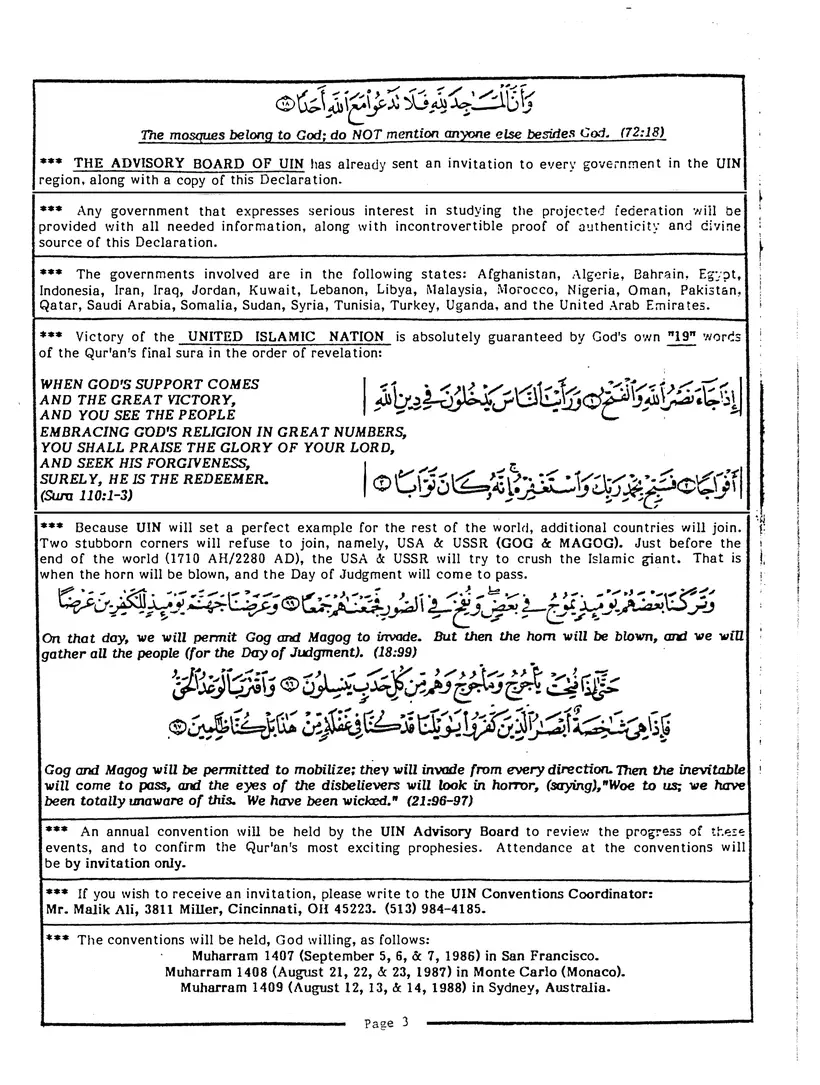 وَأَنَّ ٱلْمَسَٰجِدَ لِلَّهِ فَلَا تَدْعُوا۟ مَعَ ٱللَّهِ أَحَدًا ۝١٨
The mosques belong to God; do NOT mention anyone else besides God. (72:18)
*** THE ADVISORY BOARD OF UIN has already sent an invitation to every government in the UIN
region, along with a copy of this Declaration.
*** Any government that expresses serious interest in studying the projected federation will be
provided with all needed information, along with incontrovertible proof of authenticity and divine
source of this Declaration.
*** The governments involved are in the following states: Afghanistan, Algeria, Bahrain, Egypt,
Indonesia, Iran, Iraq, Jordan, Kuwait, Lebanon, Libya, Malaysia, Morocco, Nigeria, Oman, Pakistan,
Qatar, Saudi Arabia, Somalia, Sudan, Syria, Tunisia, Turkey, Uganda, and the United Arab Emirates.
*** Victory of the UNITED ISLAMIC NATION is absolutely guaranteed by God's own "19" words
of the Qur'an's final sura in the order of revelation:
WHEN GOD'S SUPPORT COMES
AND THE GREAT VICTORY,
AND YOU SEE THE PEOPLE
EMBRACING GOD'S RELIGION IN GREAT NUMBERS,
YOU SHALL PRAISE THE GLORY OF YOUR LORD,
AND SEEK HIS FORGIVENESS,
SURELY, HE IS THE REDEEMER.
(Sura 110:1-3)
إِذَا جَآءَ نَصْرُ ٱللَّهِ وَٱلْفَتْحُ ۝١ وَرَأَيْتَ ٱلنَّاسَ يَدْخُلُونَ فِى دِينِ ٱللَّهِ
أَفْوَاجًا ۝٢ فَسَبِّحْ بِحَمْدِ رَبِّكَ وَٱسْتَغْفِرْهُ ۚ إِنَّهُۥ كَانَ تَوَّابًۢا ۝٣
*** Because UIN will set a perfect example for the rest of the world, additional countries will join.
Two stubborn corners will refuse to join, namely, USA & USSR (GOG & MAGOG). Just before the
end of the world (1710 AH/2280 AD), the USA & USSR will try to crush the Islamic giant. That is
when the horn will be blown, and the Day of Judgment will come to pass.
وَتَرَكْنَا بَعْضَهُمْ يَوْمَئِذٍ يَمُوجُ فِى بَعْضٍ ۖ وَنُفِخَ فِى ٱلصُّورِ فَجَمَعْنَٰهُمْ جَمْعًا ۝٩٩ وَعَرَضْنَا جَهَنَّمَ يَوْمَئِذٍ لِّلْكَٰفِرِينَ عَرْضًا
On that day, we will permit Gog and Magog to invade. But then the horn will be blown, and we will
gather all the people (for the Day of Judgment). (18:99)
حَتَّىٰٓ إِذَا فُتِحَتْ يَأْجُوجُ وَمَأْجُوجُ وَهُم مِّن كُلِّ حَدَبٍ يَنسِلُونَ ۝٩٦ وَٱقْتَرَبَ ٱلْوَعْدُ ٱلْحَقُّ
فَإِذَا هِىَ شَٰخِصَةٌ أَبْصَٰرُ ٱلَّذِينَ كَفَرُوا۟ يَٰوَيْلَنَا قَدْ كُنَّا فِى غَفْلَةٍ مِّنْ هَٰذَا بَلْ كُنَّا ظَٰلِمِينَ ۝٩٧
Gog and Magog will be permitted to mobilize; they will invade from every direction. Then the inevitable
will come to pass, and the eyes of the disbelievers will look in horror, (saying),"Woe to us; we have
been totally unaware of this. We have been wicked." (21:96-97)
*** An annual convention will be held by the UIN Advisory Board to review the progress of these
events, and to confirm the Qur'an's most exciting prophesies. Attendance at the conventions will
be by invitation only.
*** If you wish to receive an invitation, please write to the UIN Conventions Coordinator:
Mr. Malik Ali, 3811 Miller, Cincinnati, OH 45223. (513) 984-4185.
*** The conventions will be held, God willing, as follows:
Muharram 1407 (September 5, 6, & 7, 1986) in San Francisco.
Muharram 1408 (August 21, 22, & 23, 1987) in Monte Carlo (Monaco).
Muharram 1409 (August 12, 13, & 14, 1988) in Sydney, Australia.
Page 3